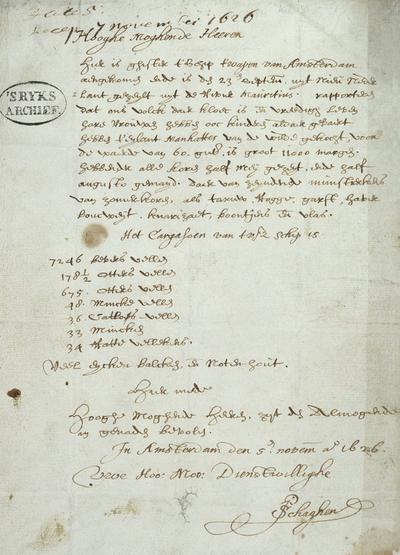 7 novembri 1626
Hooghe Moghende Heeren
'S RYKS
ARCHIEF
Hier is ghister t'Schip t'wapen van Amsterdam
aengekomen ende is den 23en septem. uyt Nieu Neder
Lant gezeylt uyt de rivier Mauritius. rapporteren
dat ons volck daer kloec is en vreedigh leven
hare vrouwen hebben ooc kinders aldaer gebaert
hebben t'eylant Manhattes van de wilde gekocht, voor
de waerde van 60. guld. is groot 11000 morgen.
hebbende alle koren half mey gezeyt, ende half
augusto gemayd. daer van zendende munsterkens
van zomerkoren, als taruwe, Rogge, garst, haver
boucweyt, knarizaet, boontjens en vlas.
Het Cargasoen van tsz schip is
7246 bevers vellen
178½ Otters vellen
675. Otters vellen
48. Mincke vellen
36 Catloes vellen
33 Mincken
34 Ratte vellekens.
Veel eycken balcken, en Noten hout.
Hier mede
Hooghe Moghende Heeren, zyt de Almogende
in genade bevolen.
In Amsterdam den 5en novem ao 1626.
Uwe Hoo: Moo: Dienstwillighe
P Schaghen